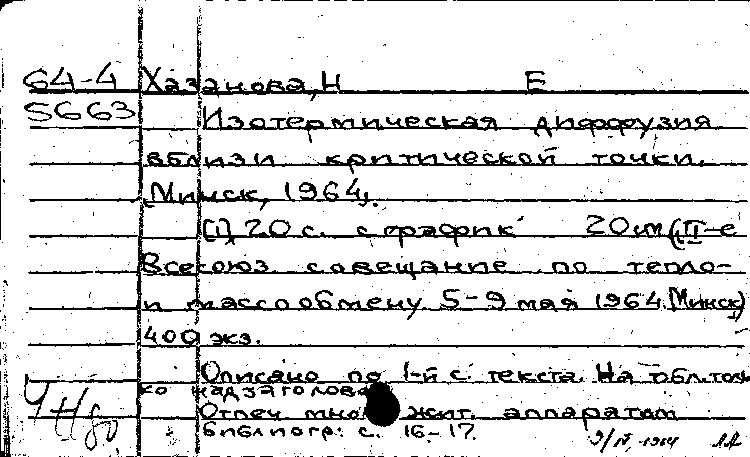 64-4 Хазанова, Н Е
5663 Изотермическая диффузия
вблизи критической точки.
Минск, 1964.
(1), 20 с. с график 20 см (II-е
Всесоюз. совещание по тепло-
и массообмену 5-9 мая 1964. Минск)
400 экз.
Описано по 1-й с. текста. На обл. толь
ко надзаголовок
Отпеч. жит. аппаратом
библиогр: с. 16-17.